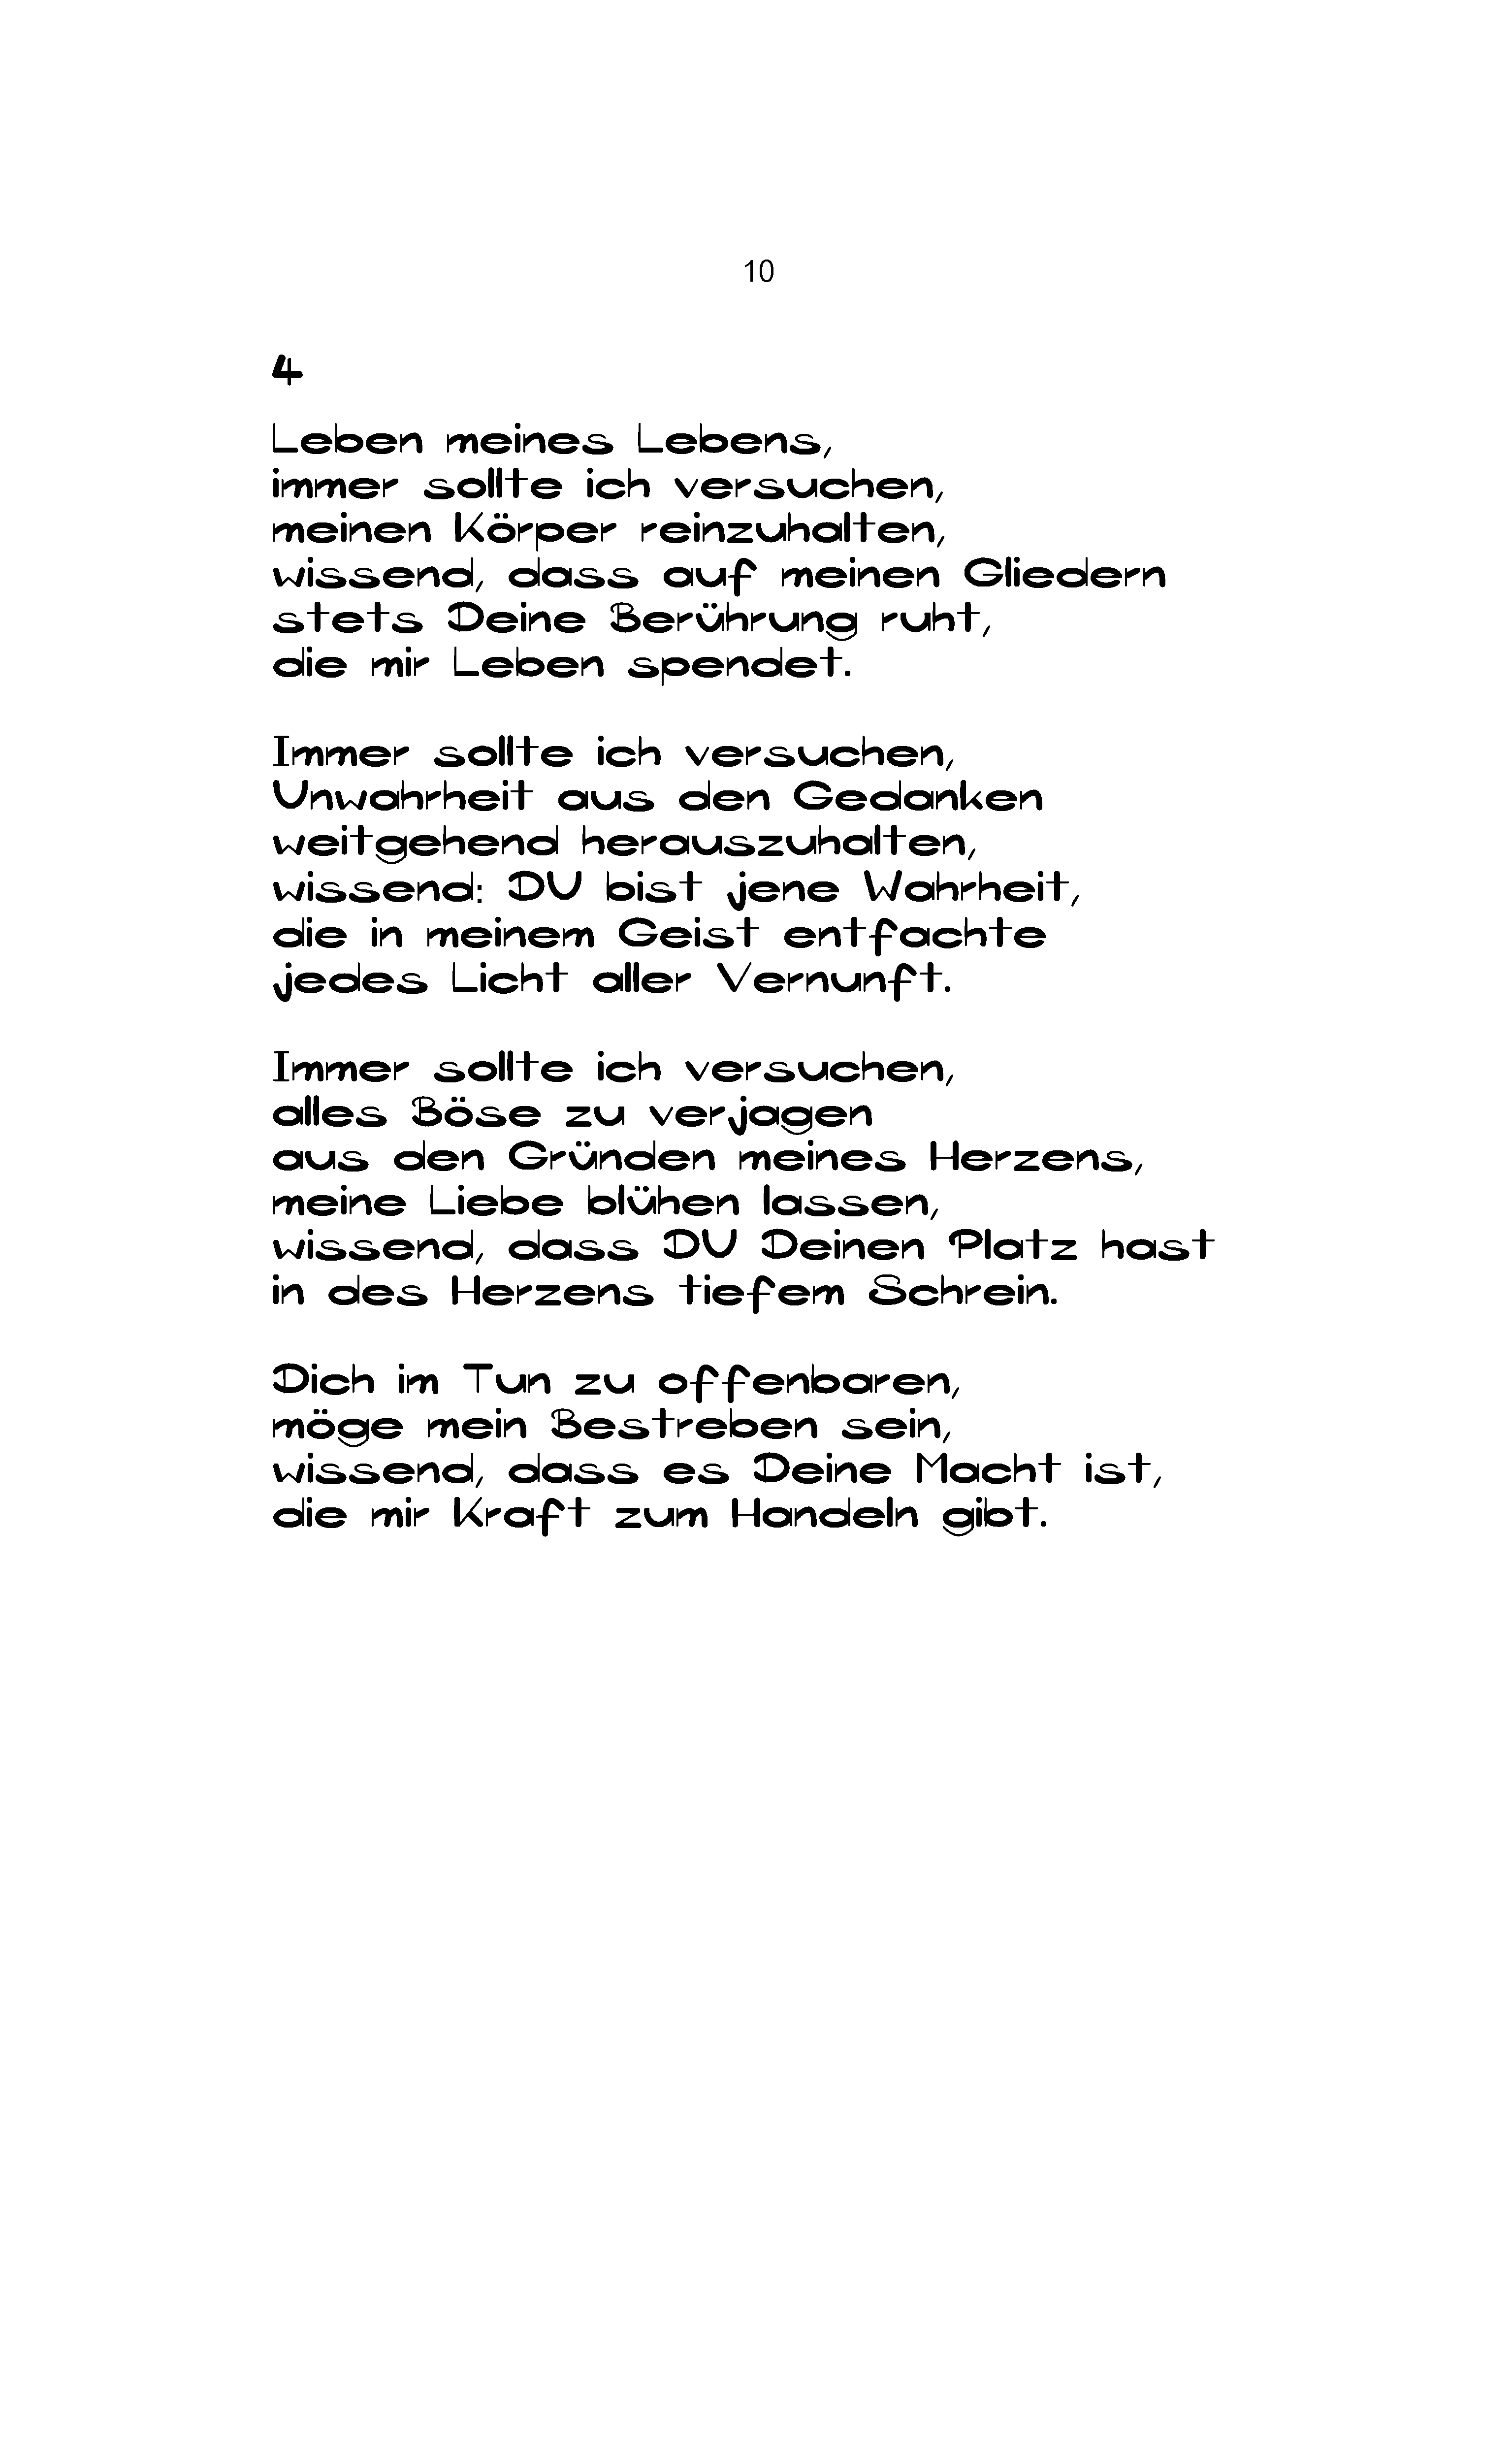 10
4
Leben meines Lebens,
immer sollte ich versuchen,
meinen Körper reinzuhalten,
wissend, dass auf meinen Gliedern
stets Deine Berührung ruht,
die mir Leben spendet.
Immer sollte ich versuchen,
Unwahrheit aus den Gedanken
weitgehend herauszuhalten,
wissend: DU bist jene Wahrheit,
die in meinem Geist entfachte
jedes Licht aller Vernunft.
Immer sollte ich versuchen,
alles Böse zu verjagen
aus den Gründen meines Herzens,
meine Liebe blühen lassen,
wissend, dass DU Deinen Platz hast
in des Herzens tiefem Schrein.
Dich im Tun zu offenbaren,
möge mein Bestreben sein,
wissend, dass es Deine Macht ist,
die mir Kraft zum Handeln gibt.